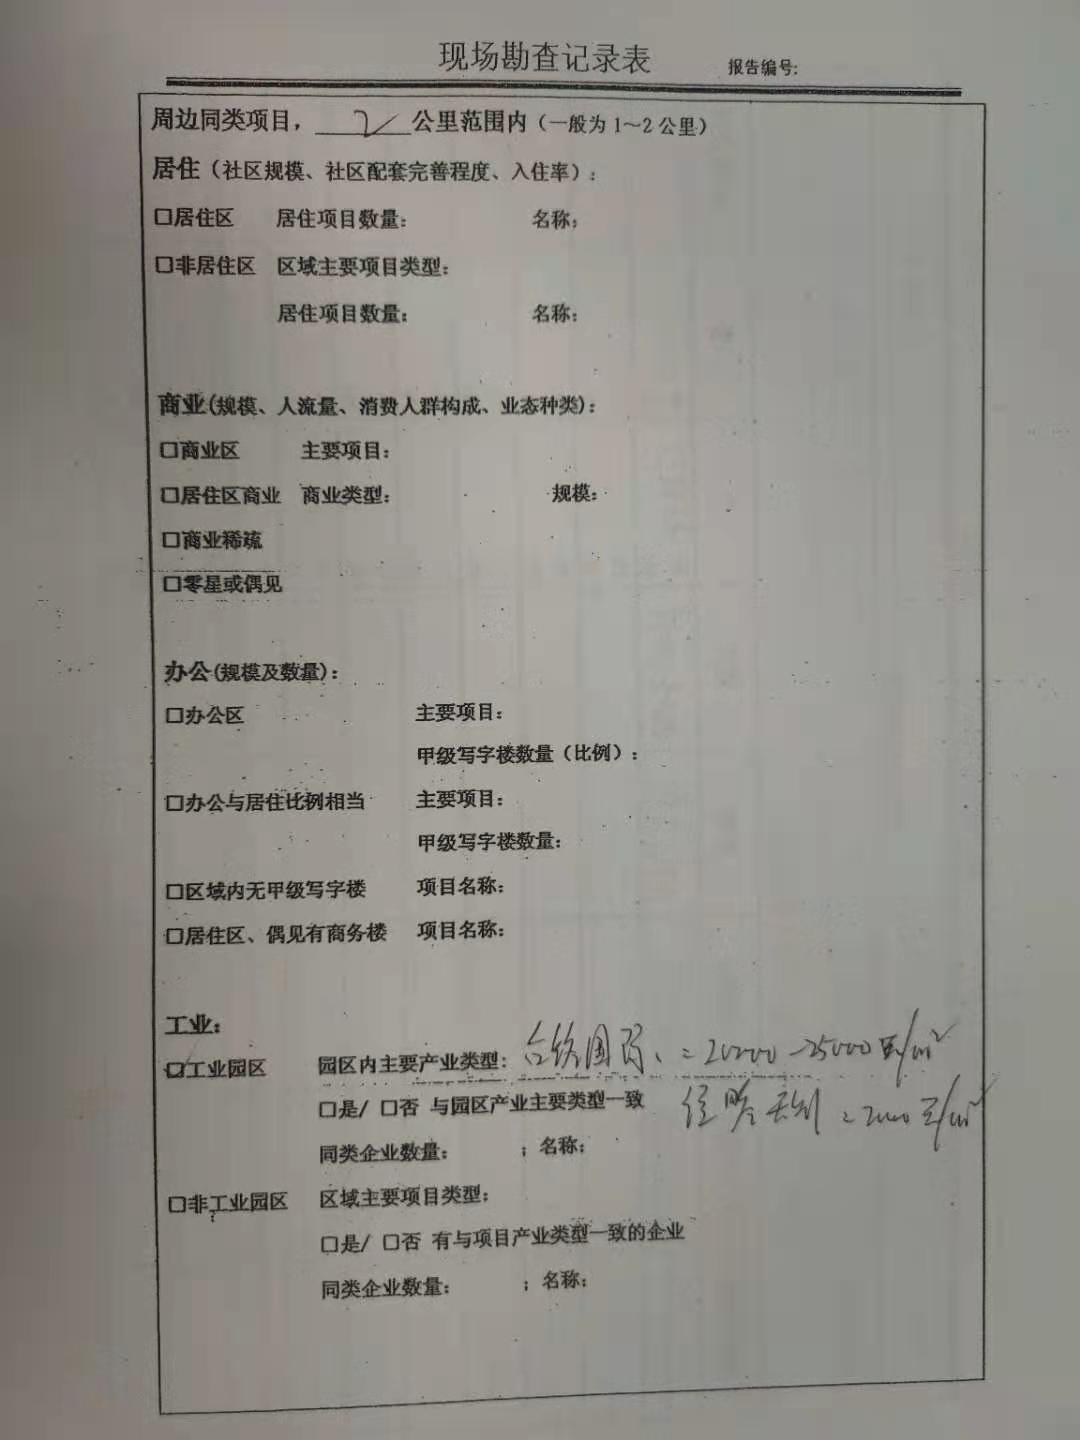 现场勘查记录表 报告编号:
周边同类项目，2公里范围内（一般为1～2公里）
居住（社区规模、社区配套完善程度、入住率）：
□居住区 居住项目数量： 名称：
□非居住区 区域主要项目类型：
居住项目数量： 名称：
商业(规模、人流量、消费人群构成、业态种类)：
□商业区 主要项目：
□居住区商业 商业类型： 规模：
□商业稀疏
□零星或偶见
办公(规模及数量)：
□办公区 主要项目：
甲级写字楼数量（比例）：
□办公与居住比例相当 主要项目：
甲级写字楼数量：
□区域内无甲级写字楼 项目名称：
□居住区、偶见有商务楼 项目名称：
工业：
□工业园区 园区内主要产业类型： 国际 25000
□是/ □否 与园区产业主要类型一致
同类企业数量： ；名称：
□非工业园区 区域主要项目类型：
□是/ □否 有与项目产业类型一致的企业
同类企业数量： ；名称：